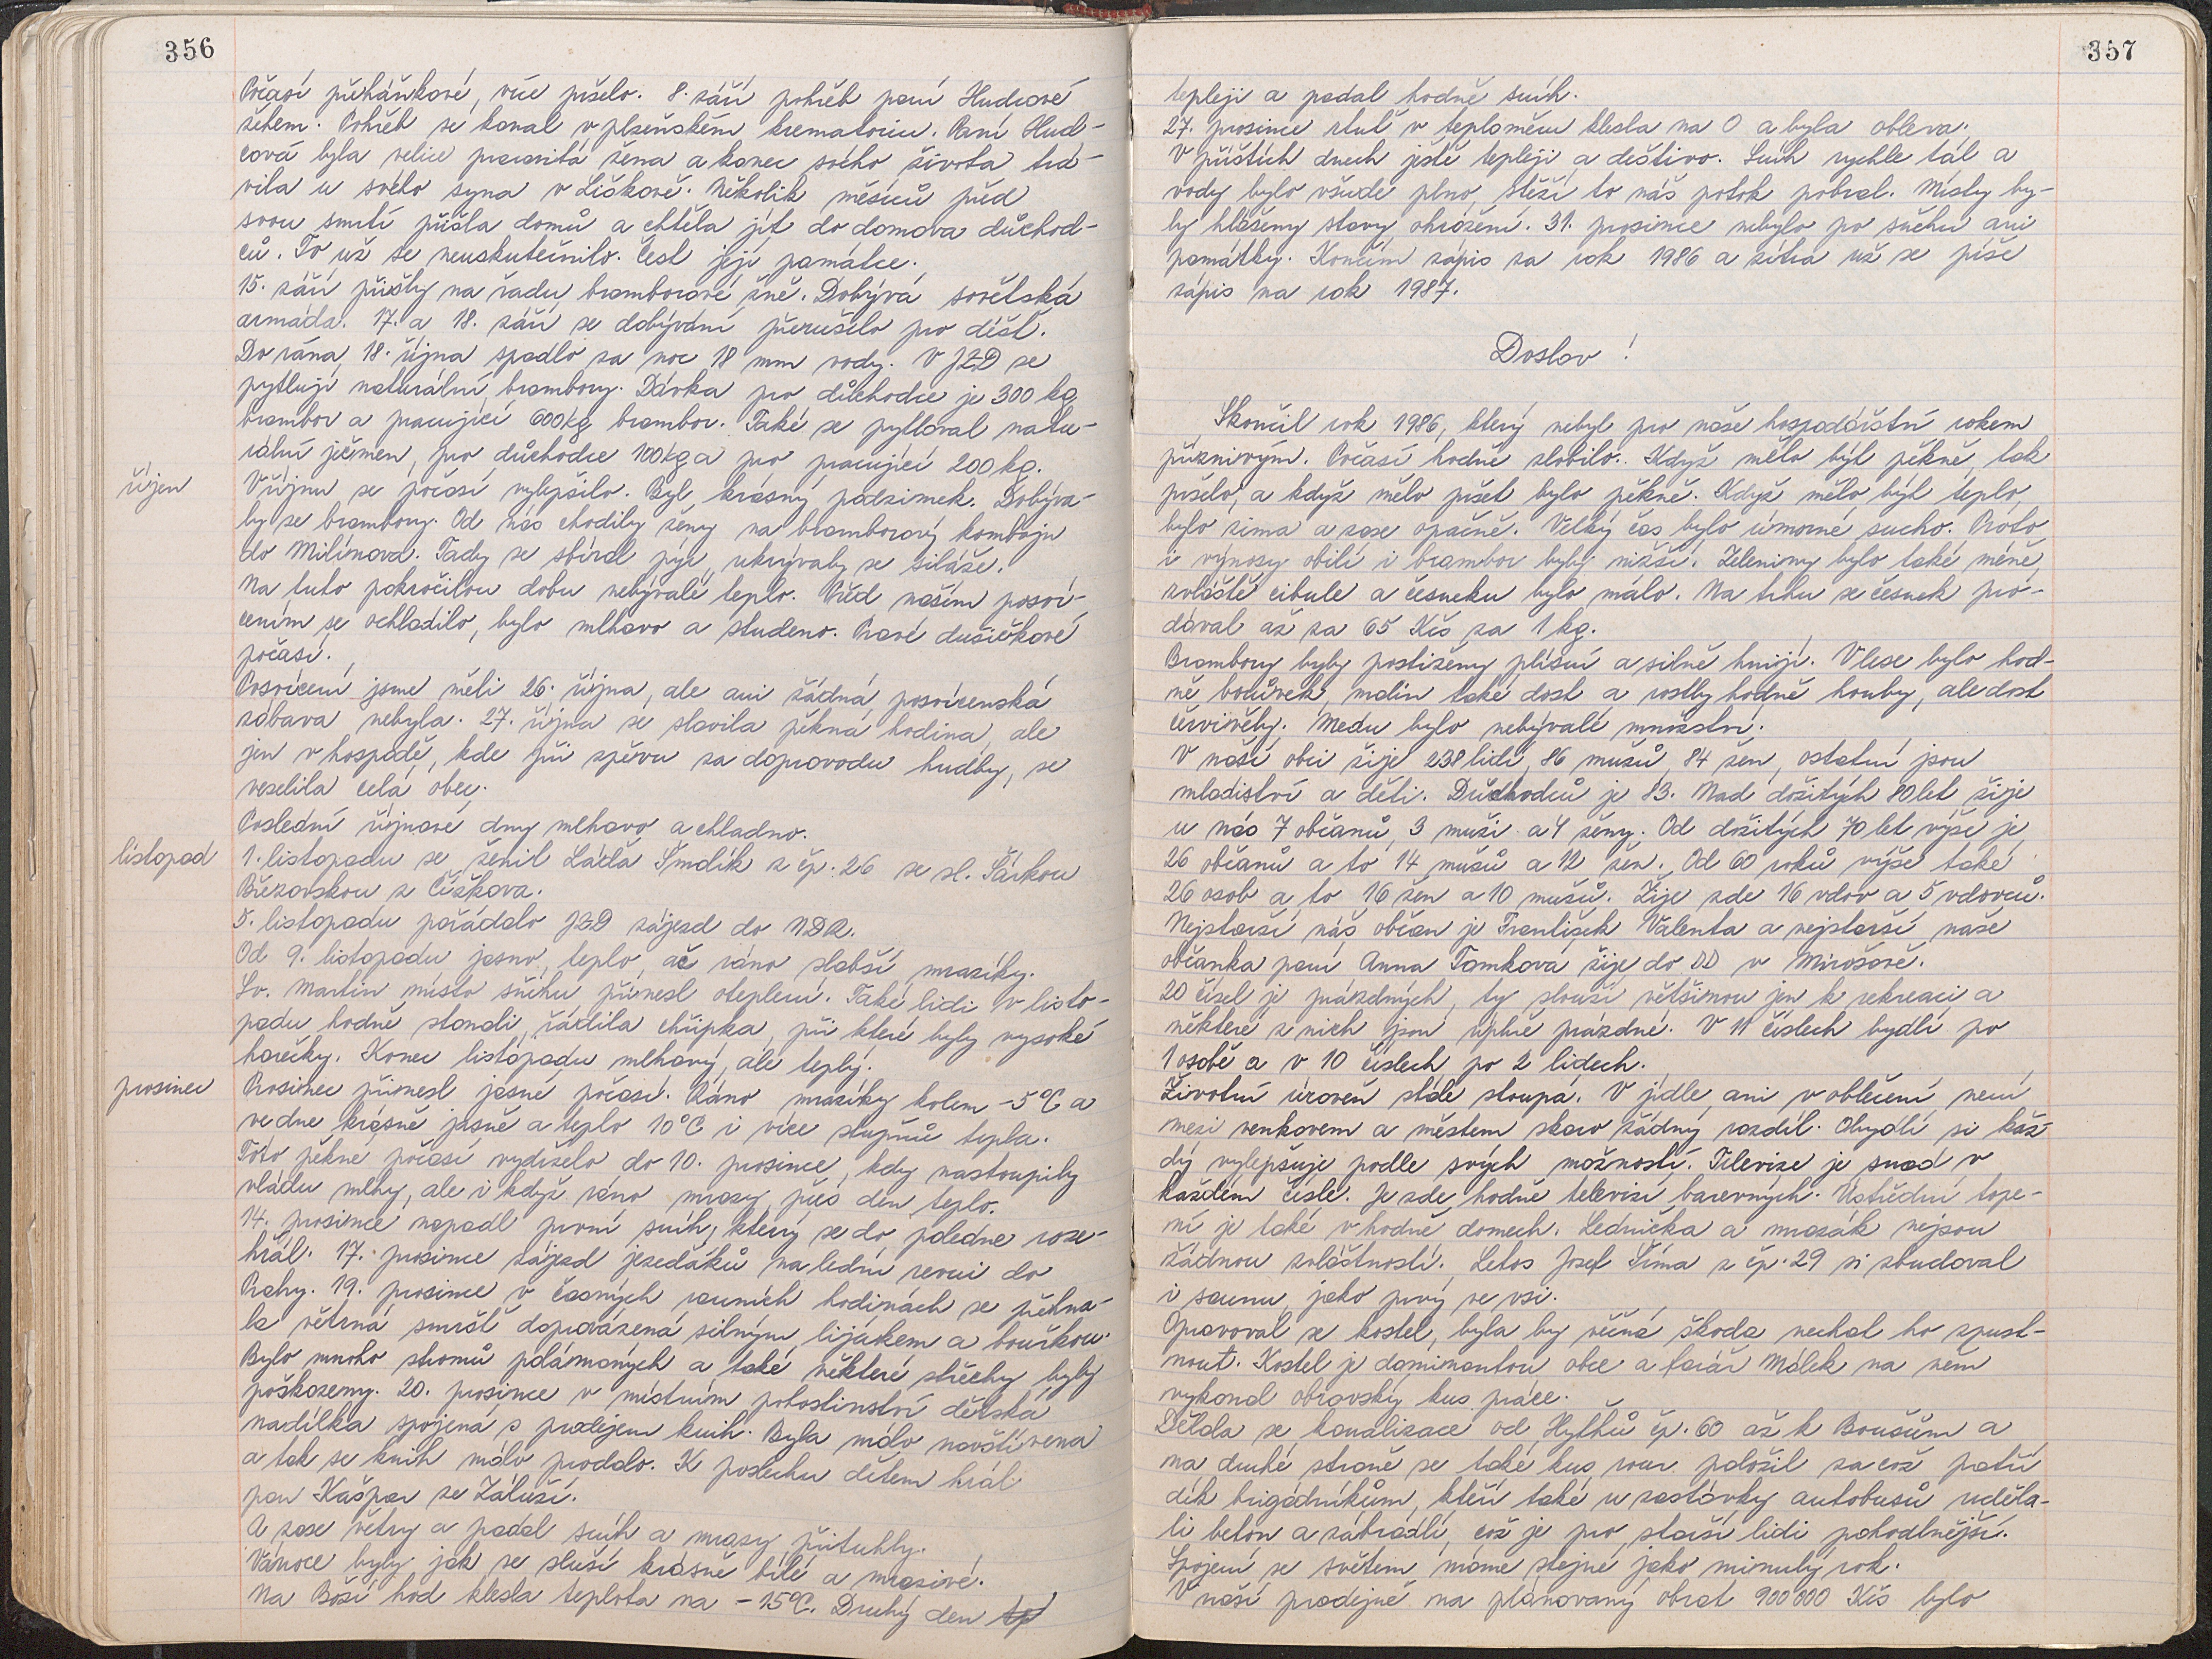 356
Počasí přeháňkové, více pršelo. 8. září pohřeb paní Hudcové
žehem. Pohřeb se konal v plzeňském krematoriu. Paní Hud-
cová byla velice pracovitá žena a konec svého života trá-
vila u svého syna v Liškově. Několik měsíců před
svou smrtí přišla domů a chtěla jít do domova důchod-
ců. To už se neuskutečnilo. Čest její památce.
15. září přišly na řadu bramborové žně. Dobývá sovětská
armáda. 17. a 18. září se dobývání přerušilo pro déšť.
Do rána 18. října spadlo za noc 18 mm vody. V JZD se
pytlují naturální brambory. Dávka pro důchodce je 300 kg
brambor a pracující 600 kg brambor. Také se pytloval natu-
rální ječmen, pro důchodce 100 kg a pro pracující 200 kg.
říjen
V říjnu se počasí vylepšilo. Byl krásný podzimek. Dobýva-
ly se brambory. Od nás chodily ženy na bramborový kombajn
do Milínova. Tady se sbíral pýr, ukrývaly se siláže.
Na tuto pokročilou dobu nebývalé teplo. Před naším posví-
cením se ochladilo, bylo mlhavo a studeno. Pravé dušičkové
počasí.
Posvícení jsme měli 26. října, ale ani žádná posvícenská
zábava nebyla. 27. října se slavila pěkná hodina, ale
jen v hospodě, kde při zpěvu za doprovodu hudby, se
veselila celá obec.
Poslední říjnové dny mlhavo a chladno.
listopad
1. listopadu se ženil Láďa Šmolík z čp. 26 se sl. Šárkou
Březovskou z Čížkova.
5. listopadu pořádalo JZD zájezd do NDR.
Od 9. listopadu jasno, teplo, ač ráno slabší mrazíky.
Sv. Martin místo sněhu přinesl oteplení. Také lidi v listo-
padu hodně stonali, řádila chřipka, při které byly vysoké
horečky. Konec listopadu mlhavý, ale teplý.
prosinec
Prosinec přinesl jasné počasí. Ráno mrazíky kolem -5°C a
ve dne krásně jasně a teplo 10°C i více stupňů tepla.
Toto pěkné počasí vydrželo do 10. prosince, kdy nastoupily
vládu mlhy, ale i když ráno mrazy přes den teplo.
14. prosince napadl první sníh, který se do poledne roze-
hřál. 17. prosince zájezd jezeďáků na lední revui do
Prahy. 19. prosince v časných ranních hodinách se přehna-
la větrná smršť doprovázená silným lijákem a bouřkou.
Bylo mnoho stromů polámaných a také některé střechy byly
poškozeny. 20. prosince v místním pohostinství dětská
nadílka spojená s prodejem knih. Byla málo navštívena
a tak se knih málo prodalo. K poslechu dětem hrál
pan Kašpar ze Záluží.
A zase větry a padal sníh a mrazy přituhly.
Vánoce byly jak se sluší krásně bílé a mrazivé.
Na Boží hod klesla teplota na -15°C. Druhý den
357
tepleji a padal hodně sníh.
27. prosince rtuť v teploměru klesla na 0 a byla obleva.
V příštích dnech ještě tepleji a deštivo. Sníh rychle tál a
vody bylo všude plno, stěží to náš potok pobral. Místy by-
ly hlášeny stavy ohrožení. 31. prosince nebylo po sněhu ani
památky. Končím zápis za rok 1986 a zítra už se píše
zápis na rok 1987.
Doslov!
Skončil rok 1986, který nebyl pro naše hospodářství rokem
příznivým. Počasí hodně zlobilo. Když mělo být pěkně, tak
pršelo, a když mělo pršet bylo pěkně. Když mělo být teplo,
bylo zima a zase opačně. Velký čas bylo úmorné sucho. Proto
i výnosy obilí i brambor byly nižší. Zeleniny bylo také méně,
zvláště cibule a česneku bylo málo. Na trhu se česnek pro-
dával až za 65 Kčs za 1 kg.
Brambory byly postiženy plísní a silně hnijí. V lese bylo hod-
ně borůvek, malin také dost a rostly hodně houby, ale dost
červivěly. Medu bylo nebývalé množství.
V naší obci žije 238 lidí, 86 mužů, 84 žen, ostatní jsou
mladiství a děti. Důchodců je 83. Nad dožitých 80 let žije
u nás 7 občanů, 3 muži a 4 ženy. Od dožitých 70 let výše je
26 občanů a to 14 mužů a 12 žen. Od 60 roků výše také
26 osob a to 16 žen a 10 mužů. Žije zde 16 vdov a 5 vdovců.
Nejstarší náš občan je František Valenta a nejstarší naše
občanka paní Anna Tomková žije do DD v Mirošově.
20 čísel je prázdných, ty slouží většinou jen k rekreaci a
některé z nich jsou úplně prázdné. V 11 číslech bydlí po
1 osobě a v 10 číslech po 2 lidech.
Životní úroveň stále stoupá. V jídle, ani v oblečení není
mezi venkovem a městem skoro žádný rozdíl. Obydlí si kaž-
dý vylepšuje podle svých možností. Televize je snad v
každém čísle. Je zde hodně televizí barevných. Ústřední tope-
ní je také v hodně domech. Lednička a mrazák nejsou
žádnou zvláštností. Letos Josef Šíma z čp. 29 si zbudoval
i saunu, jako prvý ve vsi.
Opravoval se kostel, byla by věčná škoda nechat ho zpust-
nout. Kostel je dominantou obce a farář Málek na něm
vykonal obrovský kus práce.
Dělala se kanalizace od Hyťhů čp. 60 až k Boušům a
na druhé straně se také kus rour položil za což patří
dík brigádníkům, kteří také u zastávky autobusů uděla-
li beton a zábradlí, což je pro starší lidi pohodlnější.
Spojení se světem máme stejné jako minulý rok.
V naší prodejně na plánovaný obrat 900 000 Kčs bylo